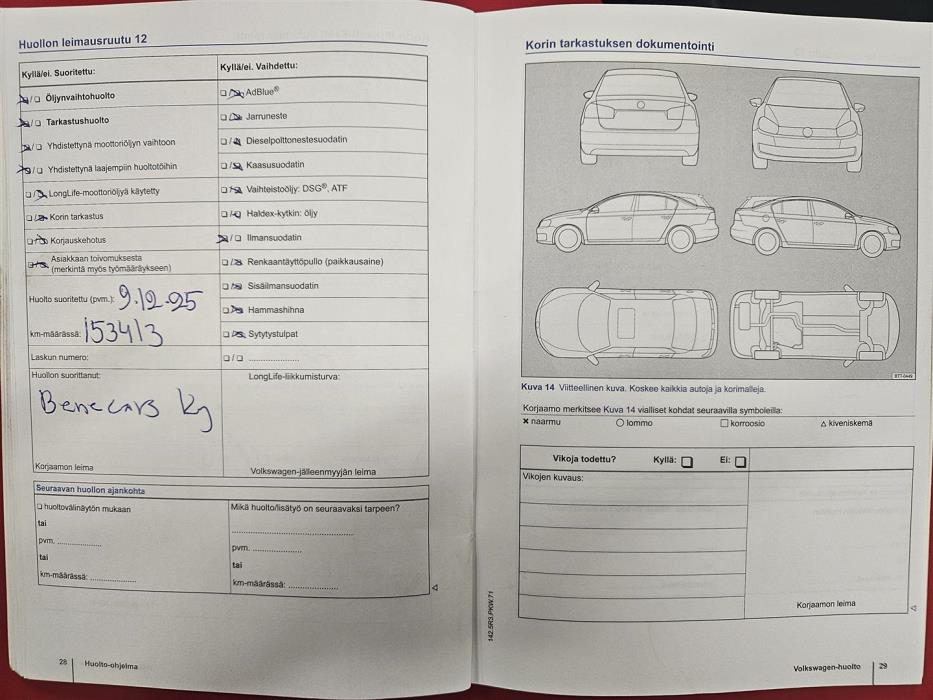 Huollon leimausruutu 12
Kyllä/ei. Suoritettu:
☒/☐ Öljynvaihtohuolto
☒/☐ Tarkastushuolto
☒/☐ Yhdistettynä moottoriöljyn vaihtoon
☒/☐ Yhdistettynä laajempiin huoltotöihin
☐/☒ LongLife-moottoriöljyä käytetty
☐/☒ Korin tarkastus
☐/☒ Korjauskehotus
☐/☒ Asiakkaan toivomuksesta
(merkintä myös työmääräykseen)
Huolto suoritettu (pvm.): 9.12.25
km-määrässä: 153413
Laskun numero:
Huollon suorittanut:
Benecars Ky
Korjaamon leima
Kyllä/ei. Vaihdettu:
☐/☒ AdBlue®
☐/☒ Jarruneste
☐/☒ Dieselpolttonestesuodatin
☐/☒ Kaasusuodatin
☐/☒ Vaihteistoöljy: DSG®, ATF
☐/☒ Haldex-kytkin: öljy
☒/☐ Ilmansuodatin
☐/☒ Renkaantäyttöpullo (paikkausaine)
☐/☒ Sisäilmansuodatin
☐/☒ Hammashihna
☐/☒ Sytytystulpat
☐/☐ ....................
LongLife-liikkumisturva:
Volkswagen-jälleenmyyjän leima
Seuraavan huollon ajankohta
☐ huoltovälinäytön mukaan
tai
pvm. .................
tai
km-määrässä: .................
Mikä huolto/lisätyö on seuraavaksi tarpeen?
.............................................
pvm. ..................
tai
km-määrässä: ..................
28 Huolto-ohjelma
Korin tarkastuksen dokumentointi
BTT-0449
Kuva 14 Viitteellinen kuva. Koskee kaikkia autoja ja korimalleja.
Korjaamo merkitsee Kuva 14 vialliset kohdat seuraavilla symboleilla:
✕ naarmu ○ lommo □ korroosio △ kiveniskemä
Vikoja todettu? Kyllä: ☐ Ei: ☐
Vikojen kuvaus:
Korjaamon leima
142.5R3.PKW.71
Volkswagen-huolto 29